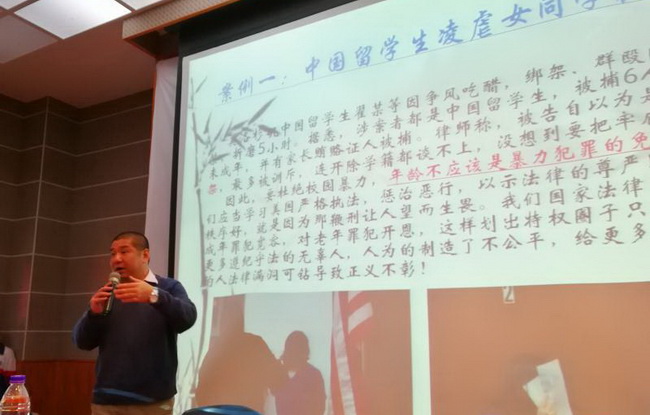 案例一：中国留学生凌虐女同学
中国留学生翟某等因争风吃醋，绑架、群殴
5小时。据悉，涉案者都是中国留学生，被捕6人
未成年，并有家长贿赂证人被捕。律师称，被告自以为是
架，最多被训斥，连开除学籍都谈不上，没想到要把牢底
因此，要杜绝校园暴力，年龄不应该是暴力犯罪的免
们应当学习美国严格执法，惩治恶行，以示法律的尊严
秩序好，就是因为那鞭刑让人望而生畏。我们国家法律
成年罪犯宽容，对老年罪犯开恩，这样划出特权圈子只
更多遵纪守法的无辜人，人为的制造了不公平，给更多
的人法律漏洞可钻导致正义不彰！
2